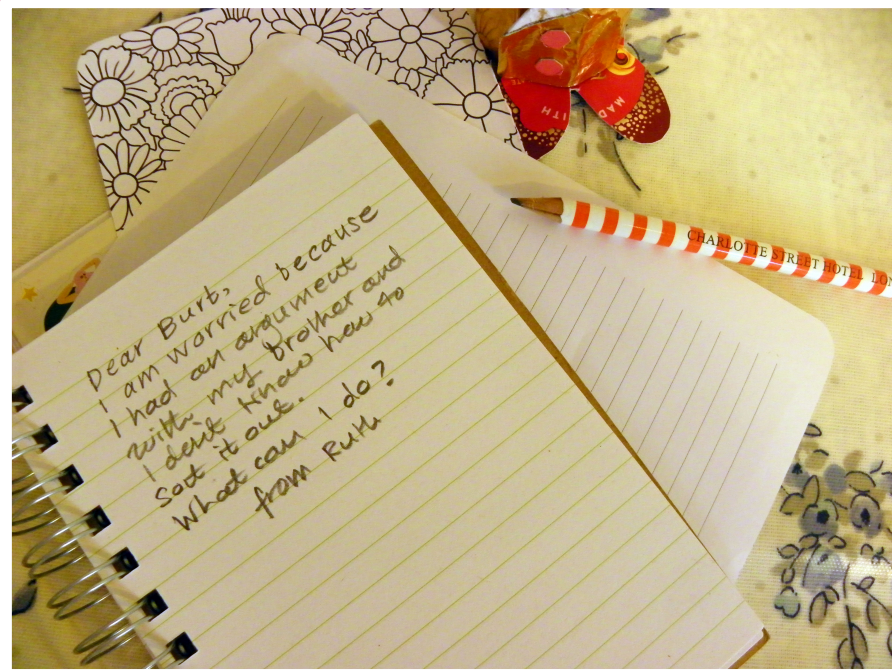 Dear Burt,
I am worried because
I had an argument
with my brother and
I don't know how to
sort it out.
What can I do?
from Ruth
CHARLOTTE STREET HOTEL LON
ITH
MAD